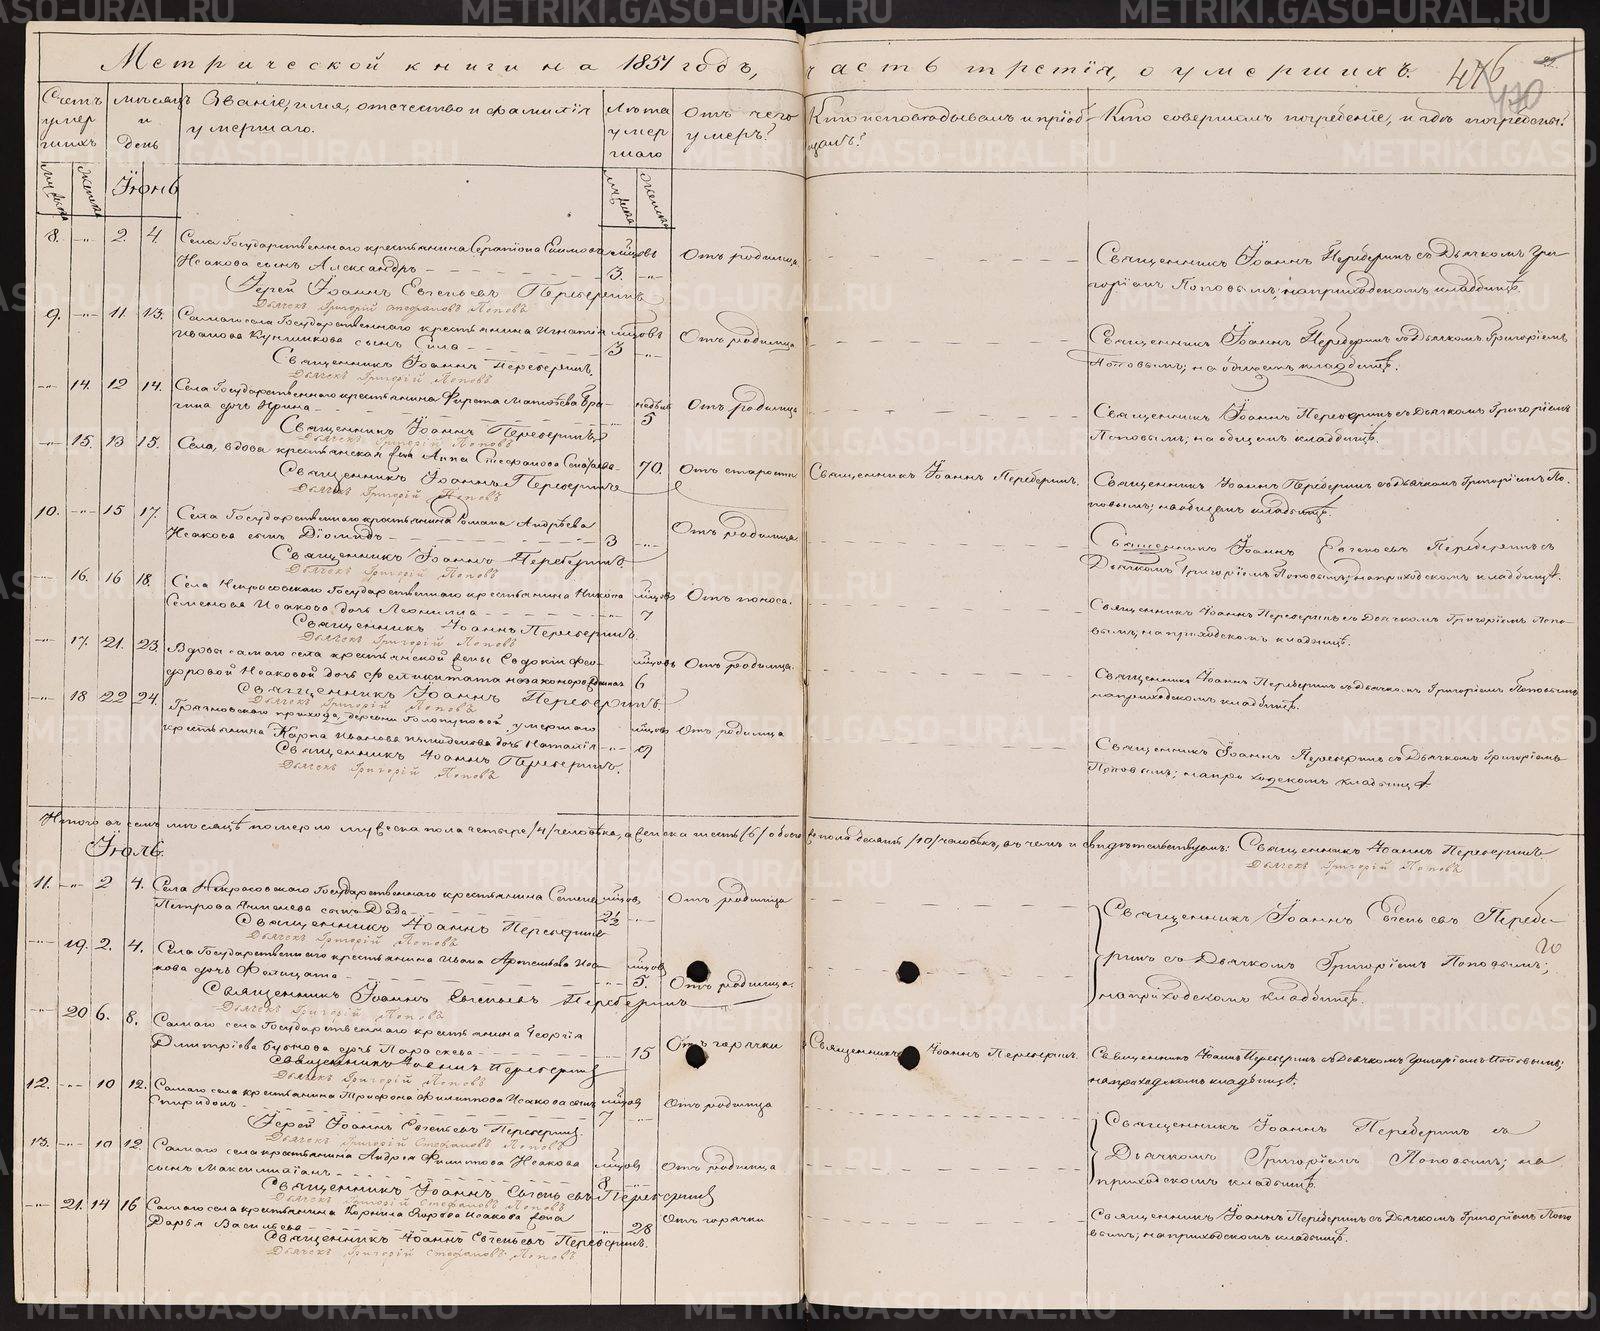 Метрической книги на 1851 годъ, часть третія, о умершихъ.
476
470
Счетъ умер шихъ
мѣсяцъ и день
Званіе, имя, отечество и фамилія умершаго.
Лѣта умер шаго
Отъ чего умеръ?
Кто исповѣдывалъ и пріоб- щалъ?
Кто совершалъ погребеніе, и гдѣ погребены?
Іюнь
8. -"- 2. 4. Села Государственнаго крестьянина Серапіона Екимова мѣсяцовъ
Исакова сынъ Александръ 3. -"- Отъ родимца
Іерей Іоаннъ Евгеньевъ Переберинъ
Дьячекъ Григорій Стефановъ Поповъ
Священникъ Іоаннъ Переберинъ съ Дьячкомъ Гри-
горіемъ Поповымъ; на приходскомъ кладбищѣ.
9. -"- 11 13. Самаго села Государственнаго крестьянина Игнатія мѣсяцовъ
Иванова сынъ Сила 3 -"- Отъ родимца
Священникъ Іоаннъ Переберинъ.
Дьячекъ Григорій Поповъ
Священникъ Іоаннъ Переберинъ съ Дьячкомъ Григоріемъ
Поповымъ; на общемъ кладбищѣ.
-"- 14. 12 14. Села Государственнаго крестьянина Матвѣева
дочь Ирина недѣль 5 Отъ родимца
Священникъ Іоаннъ Переберинъ
Дьячекъ Григорій Поповъ
Священникъ Іоаннъ Переберинъ съ Дьячкомъ Григоріемъ
Поповымъ; на общемъ кладбищѣ.
-"- 15. 13 15. Села, вдова крестьянская жена Анна Стефанова 70. Отъ старости
Священникъ Іоаннъ Переберинъ.
Священникъ Іоаннъ Переберинъ
Дьячекъ Григорій Поповъ
Священникъ Іоаннъ Переберинъ съ Дьячкомъ Григоріемъ По-
повымъ; на общемъ кладбищѣ.
10. -"- 15 17. Села Государственнаго крестьянина Романа Андрѣева
Исакова сынъ Діомидъ 3 -"- Отъ родимца
Священникъ Іоаннъ Переберинъ
Дьячекъ Григорій Поповъ
Священникъ Іоаннъ Евгеньевъ Переберинъ съ
Дьячкомъ Григоріемъ Поповымъ; на приходскомъ кладбищѣ.
-"- 16. 16 18. Села Некрасовскаго Государственнаго крестьянина мѣсяцовъ
Семенова Исакова дочь Леонилла 7 Отъ поноса.
Священникъ Іоаннъ Переберинъ
Дьячекъ Григорій Поповъ
Священникъ Іоаннъ Переберинъ съ Дьячкомъ Григоріемъ Попо-
вымъ; на приходскомъ кладбищѣ.
-"- 17. 21. 23. Вдовы самаго села крестьянской жены Евдокіи Фео- мѣсяцовъ
доровой Исаковой дочь Фелицитата незаконорожденная 6 Отъ родимца.
Священникъ Іоаннъ Переберинъ.
Дьячекъ Григорій Поповъ
Священникъ Іоаннъ Переберинъ съ Дьячкомъ Григоріемъ Поповымъ
на приходскомъ кладбищѣ.
-"- 18 22 24. прихода, деревни умершаго мѣсяцовъ
крестьянина Карпа Иванова дочь Наталія -"- 9 Отъ родимца
Священникъ Іоаннъ Переберинъ.
Дьячекъ Григорій Поповъ
Священникъ Іоаннъ Переберинъ съ Дьячкомъ Григоріемъ
Поповымъ; на приходскомъ кладбищѣ
Итого въ семъ мѣсяцѣ померло мужеска пола четыре /4/ человѣка, а женска шесть /6/ обоего пола десять /10/ человѣкъ, въ чемъ и свидѣтельствуемъ: Священникъ Іоаннъ Переберинъ
Дьячекъ Григорій Поповъ
Іюль.
11. -"- 2 4. Села Некрасовскаго Государственнаго крестьянина Семена мѣсяцовъ
Петрова сынъ 2½ -"- Отъ родимца
Священникъ Іоаннъ Переберинъ
Дьячекъ Григорій Поповъ
Священникъ Іоаннъ Евгеньевъ Перебе-
-"- 19. 2. 4. Села Государственнаго крестьянина Ивана Артемьева Иса- мѣсяцовъ
кова дочь Фелицата 5. Отъ родимца.
Священникъ Іоаннъ Евгеньевъ Переберинъ
Дьячекъ Григорій Поповъ
ринъ съ Дьячкомъ Григоріемъ Поповымъ;
на приходскомъ кладбищѣ.
-"- 20 6. 8. Самаго села Государственнаго крестьянина Георгія
Дмитріева дочь Параскева 15 Отъ горячки
Священникъ Іоаннъ Переберинъ.
Священникъ Іоаннъ Переберинъ
Дьячекъ Григорій Поповъ
Священникъ Іоаннъ Переберинъ съ Дьячкомъ Григоріемъ Поповымъ;
на приходскомъ кладбищѣ.
12. -"- 10 12. Самаго села крестьянина Трифона Филиппова Исакова сынъ мѣсяцовъ
Спиридонъ 7 -"- Отъ родимца
Іерей Іоаннъ Евгеньевъ Переберинъ.
Дьячекъ Григорій Стефановъ Поповъ
Священникъ Іоаннъ Переберинъ съ
13. -"- 10 12. Самаго села крестьянина Андрея Филипова Исакова мѣсяцовъ
сынъ Максимиліанъ 8 -"- Отъ родимца
Священникъ Іоаннъ Евгеньевъ Переберинъ
Дьячекъ Григорій Стефановъ Поповъ
Дьячкомъ Григоріемъ Поповымъ; на
приходскомъ кладбищѣ.
-"- 21. 14 16 Самаго села крестьянина Корнила Исакова жена
Дарья Васильева 28 Отъ горячки
Священникъ Іоаннъ Евгеньевъ Переберинъ.
Дьячекъ Григорій Стефановъ Поповъ
Священникъ Іоаннъ Переберинъ съ Дьячкомъ Григоріемъ Попо
вымъ; на приходскомъ кладбищѣ.
METRIKI.GASO-URAL.RU